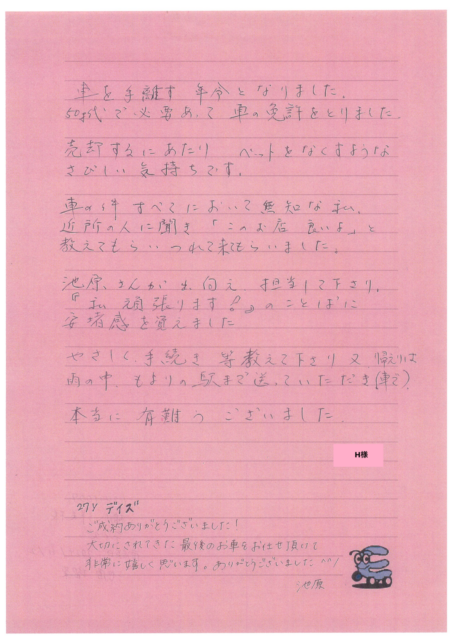 車を手離す 年令となりました.
50才代で必要あって 車の免許をとりました
売却するにあたり ペットをなくすような
さびしい気持ちです.
車の件 すべてにおいて無知な私、
近所の人に聞き「このお店 良いよ」と
教えてもらい つれて来てもらいました.
池原さんがお向え 担当して下さり.
『私 頑張ります!』のことばに
安堵感を覚えました
やさしく、手続き 等教えて下さり 又 帰りは
雨の中、もよりの駅まで送っていただき(車で)
本当に 有難う ございました.
H様
27Y デイズ
ご成約ありがとうございました!
大切にされてきた最後のお車をお任せ頂けて
非常に嬉しく思います。ありがとうございました^^)
池原